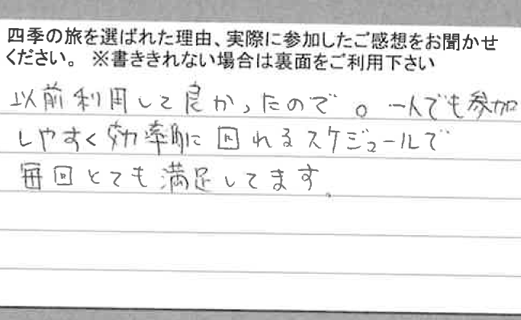 四季の旅を選ばれた理由、実際に参加したご感想をお聞かせ
ください。 ※書ききれない場合は裏面をご利用下さい
以前利用して良かったので。一人でも参加
しやすく効率的に回れるスケジュールで
毎回とても満足してます。